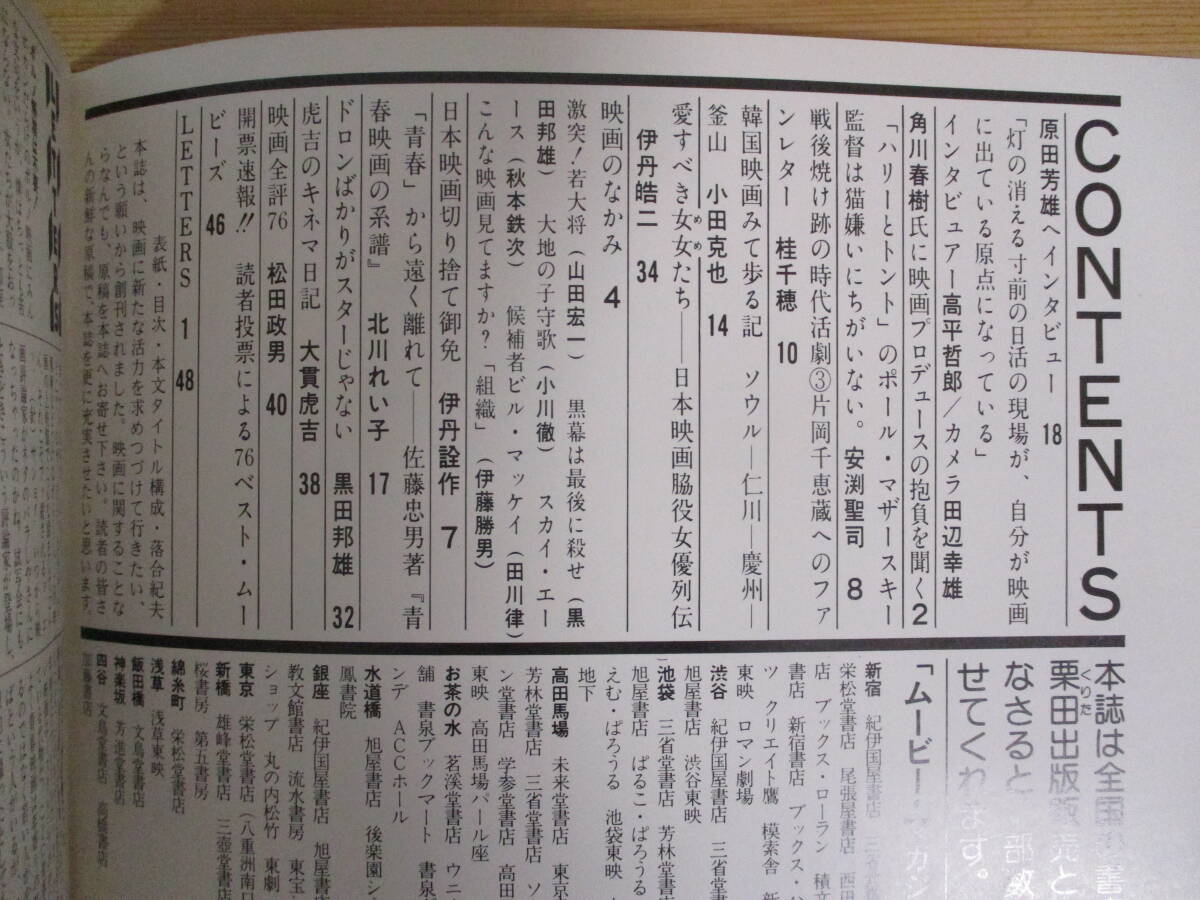 CONTENTS
原田芳雄へインタビュー 18
「灯の消える寸前の日活の現場が、自分が映画
に出ている原点になっている」
インタビュアー高平哲郎/カメラ田辺幸雄
角川春樹氏に映画プロデュースの抱負を聞く 2
「ハリーとトント」のポール・マザースキー
監督は猫嫌いにちがいない。 安渕聖司 8
戦後焼け跡の時代活劇③片岡千恵蔵へのファ
ンレター 桂千穂 10
韓国映画みて歩る記 ソウル―仁川―慶州―
釜山 小田克也 14
愛すべき女女たち――日本映画脇役女優列伝
めめ
伊丹皓二 34
映画のなかみ 4
激突!若大将(山田宏一) 黒幕は最後に殺せ(黒
田邦雄) 大地の子守歌(小川徹) スカイ・エー
ース(秋本鉄次) 候補者ビル・マッケイ(田川律)
こんな映画見てますか?「組織」(伊藤勝男)
日本映画切り捨て御免 伊丹詮作 7
「青春」から遠く離れて――佐藤忠男著『青
春映画の系譜』 北川れい子 17
ドロンばかりがスターじゃない 黒田邦雄 32
虎吉のキネマ日記 大貫虎吉 38
映画全評76 松田政男 40
開票速報!! 読者投票による76ベスト・ムー
ビーズ 46
LETTERS 1 48
表紙・目次・本文タイトル構成・落合紀夫
本誌は、映画に新たな活力を求めつづけて行きたい、
という願いから創刊されました。映画に関することな
らなんでも、原稿を本誌へお寄せ下さい。読者の皆さ
んの新鮮な原稿で、本誌を更に充実させたいと思います。
本誌は全国の書
栗田出版販売と
くりた
なさると
部数
せてく
ます。
「ムービー
新宿 紀伊国屋書店 三省
栄松堂書店 尾張屋書店 西田
店 ブックス・ローラン 積文
書店 新宿書店 ブックス・
ツ クリエイト鷹 模索舎 新
東映 ロマン劇場
渋谷 紀伊国屋書店 三省堂書
旭屋書店 渋谷東映
池袋 三省堂書店 芳林堂書
旭屋書店 ぱるこ・ぱろうる
えむ・ぱろうる 池袋東映
地下
高田馬場 未来堂書店 東京
芳林堂書店 三省堂書店 ソ
ン堂書店 学参堂書店 高田
東映 高田馬場パール座
お茶の水 茗溪堂書店 ウニ
舗 書泉ブックマート 書泉
ンデ ACCホール
水道橋 旭屋書店 後楽園シ
鳳書院
銀座 紀伊国屋書店 旭屋書
教文館書店 流水書房 東宝
ショップ 丸の内松竹 東劇
東京 栄松堂書店(八重洲南口
新橋 雄峰堂書店 三壺堂書店
桜書房 第五書房
錦糸町 栄松堂書店
浅草 浅草東映
飯田橋 文鳥堂書店
神楽坂 芳進堂書店
四谷 文鳥堂書店